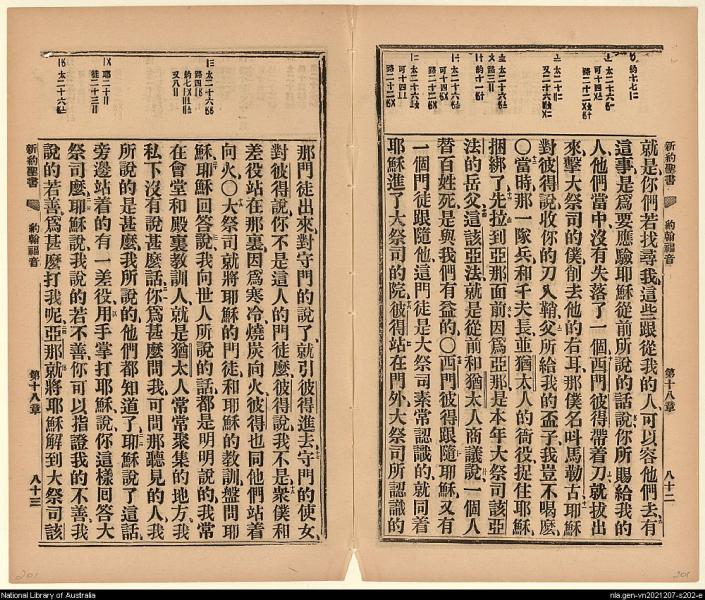 新約聖書
約翰福音
第十八章
八十二
就是你們若找尋我這些跟從我的人可以容他們去有
這事是爲要應驗耶穌從前所說的話說你所賜給我的
人他們當中沒有失落了一個西門彼得帶着刀就拔出
來擊大祭司的僕削去他的右耳那僕名呌馬勒古耶穌
對彼得說收你的刀入鞘父所給我的盃子我豈不喝麼
〇當時那一隊兵和千夫長並猶太人的衙役捉住耶穌
捆綁了先拉到亞那面前因爲亞那是本年大祭司該亞
法的岳父這該亞法就是從前和猶太人商議說一個人
替百姓死是與我們有益的〇西門彼得跟隨耶穌又有
一個門徒跟隨他這門徒是大祭司素常認識的就同着
耶穌進了大祭司的院彼得站在門外大祭司所認識的
那門徒出來對守門的說了就引彼得進去守門的使女
對彼得說你不是這人的門徒麼彼得說我不是衆僕和
差役站在那裏因爲寒冷燒炭向火彼得也同他們站着
向火〇大祭司就將耶穌的門徒和耶穌的教訓盤問耶
穌耶穌回答說我向世人所說的話都是明明說的我常
在會堂和殿裏教訓人就是猶太人常常聚集的地方我
私下沒有說甚麼話你爲甚麼問我可問那聽見的人我
所說的是甚麼我所說的他們都知道了耶穌說了這話
旁邊站着的有一差役用手掌打耶穌說你這樣回答大
祭司麼耶穌說我說的若不善你可以指證我的不善我
說的若善爲甚麼打我呢亞那就將耶穌解到大祭司該
新約聖書
約翰福音
第十八章
八十三
National Library of Australia
nla.gen-vn2021207-s202-e